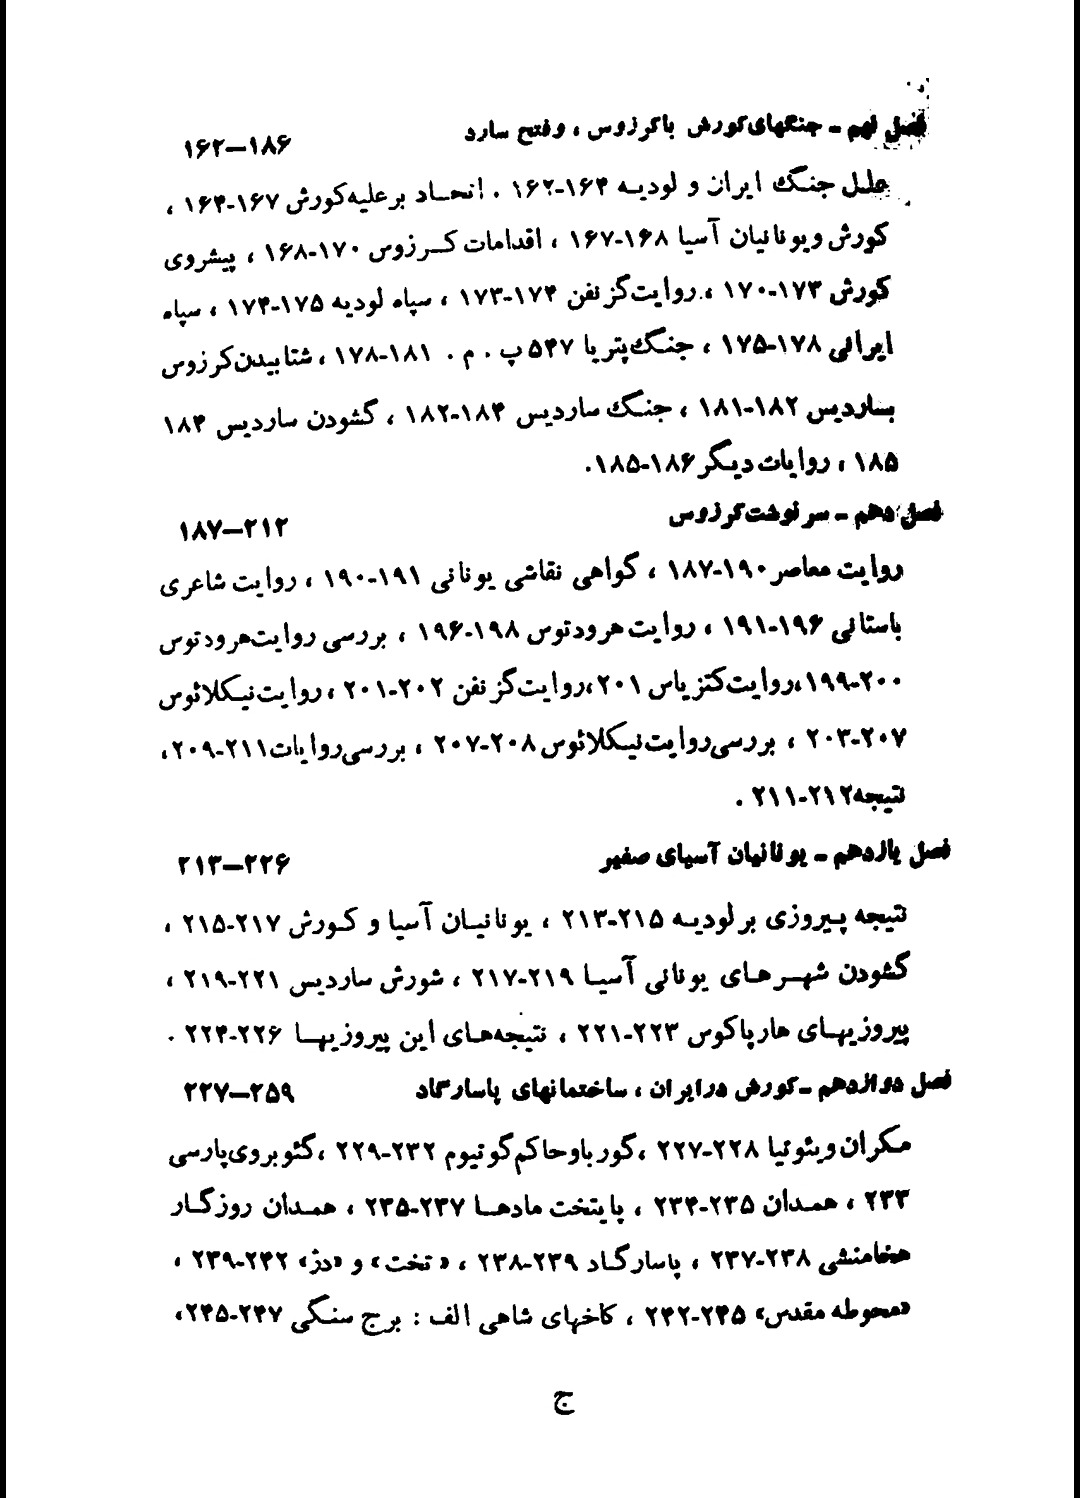 فصل نهم ـ جنگهای کورش با کرزوس ، و فتح سارد ۱۸۶—۱۶۲
علل جنگ ایران و لودیه ۱۶۴-۱۶۲ . اتحاد بر علیه کورش ۱۶۷-۱۶۴ ،
کورش و یونانیان آسیا ۱۶۸-۱۶۷ ، اقدامات کرزوس ۱۷۰-۱۶۸ ، پیشروی
کورش ۱۷۳-۱۷۰ ، روایت گزنفن ۱۷۴-۱۷۳ ، سپاه لودیه ۱۷۵-۱۷۴ ، سپاه
ایرانی ۱۷۸-۱۷۵ ، جنگ پتریا ۵۴۷ پ . م . ۱۸۱-۱۷۸ ، شتابیدن کرزوس
بساردیس ۱۸۲-۱۸۱ ، جنگ ساردیس ۱۸۴-۱۸۲ ، گشودن ساردیس ۱۸۴
۱۸۵ ، روایات دیگر ۱۸۶-۱۸۵.
فصل دهم ـ سرنوشت کرزوس ۲۱۲—۱۸۷
روایت معاصر ۱۹۰-۱۸۷ ، گواهی نقاشی یونانی ۱۹۱-۱۹۰ ، روایت شاعری
باستانی ۱۹۶-۱۹۱ ، روایت هرودتوس ۱۹۸-۱۹۶ ، بررسی روایت هرودتوس
۲۰۰-۱۹۹،روایت کتزیاس ۲۰۱ ،روایت گزنفن ۲۰۲-۲۰۱ ، روایت نیکلائوس
۲۰۷-۲۰۳ ، بررسی روایت نیکلائوس ۲۰۸-۲۰۷ ، بررسی روایات ۲۱۱-۲۰۹،
نتیجه ۲۱۲-۲۱۱ .
فصل یازدهم ـ یونانیان آسیای صغیر ۲۲۶—۲۱۳
نتیجه پیروزی بر لودیه ۲۱۵-۲۱۳ ، یونانیان آسیا و کورش ۲۱۷-۲۱۵ ،
گشودن شهرهای یونانی آسیا ۲۱۹-۲۱۷ ، شورش ساردیس ۲۲۱-۲۱۹ ،
پیروزیهای هارپاکوس ۲۲۳-۲۲۱ ، نتیجه‌های این پیروزیها ۲۲۶-۲۲۴ .
فصل دوازدهم ـ کورش در ایران ، ساختمانهای پاسارگاد ۲۵۹—۲۲۷
مکران و یئوتیا ۲۲۸-۲۲۷ ،گورباو حاکم گوتیوم ۲۳۲-۲۲۹ ،گئوبروی پارسی
۲۳۳ ، همدان ۲۳۵-۲۳۴ ، پایتخت مادها ۲۳۷-۲۳۵ ، همدان روزگار
هخامنشی ۲۳۸-۲۳۷ ، پاسارگاد ۲۳۹-۲۳۸ ، «تخت» و «دژ» ۲۴۲-۲۳۹ ،
«محوطه مقدس» ۲۴۵-۲۴۲ ، کاخهای شاهی الف : برج سنگی ۲۴۷-۲۴۵،
ج